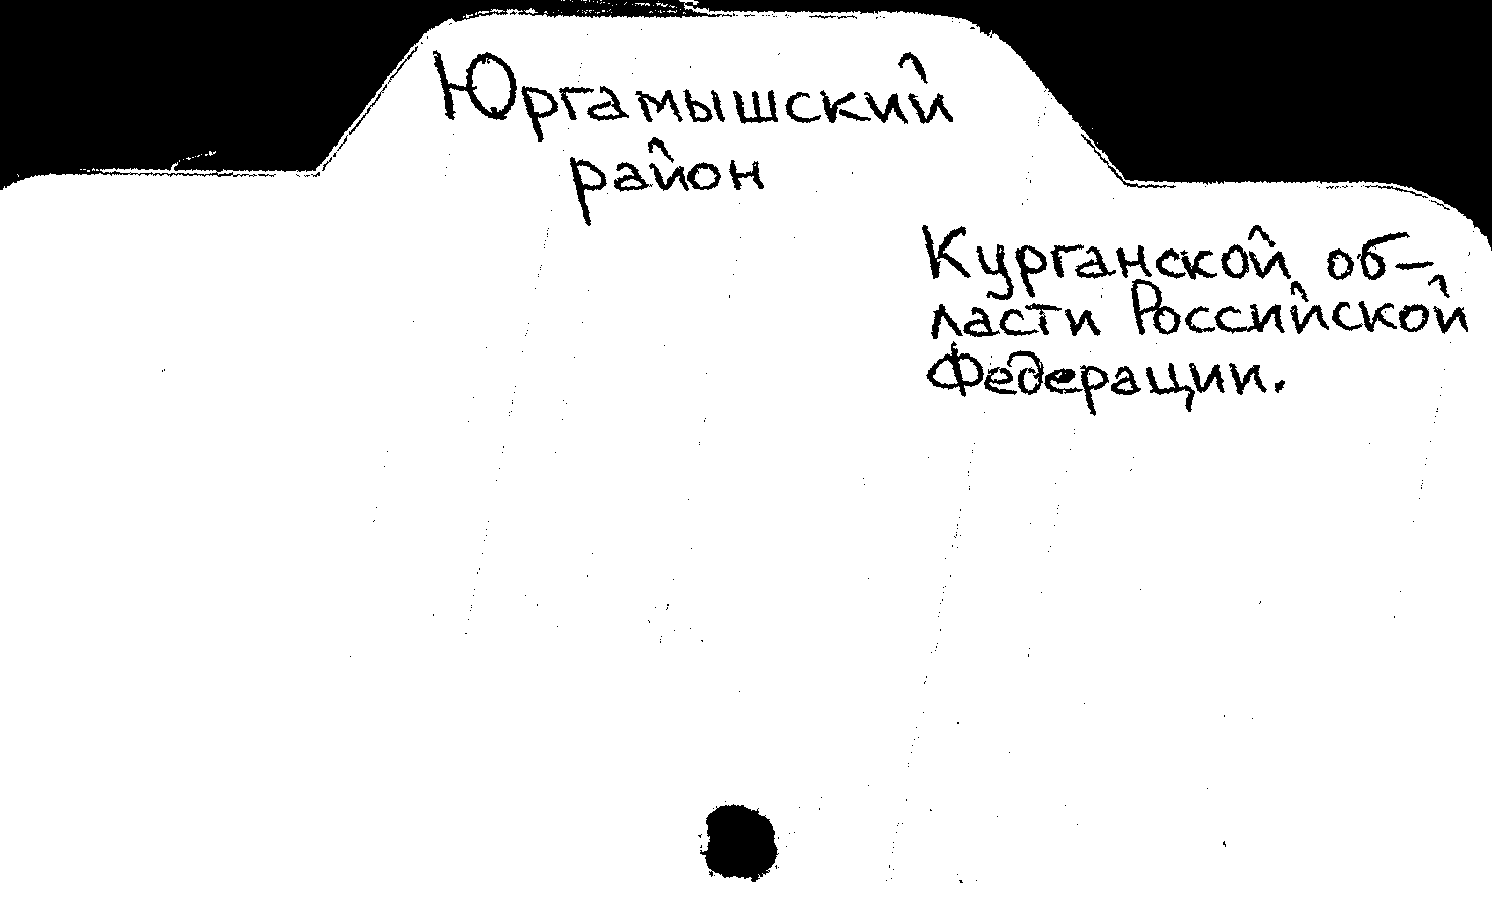 Юргамышский
район
Курганской об-
ласти Российской
Федерации.